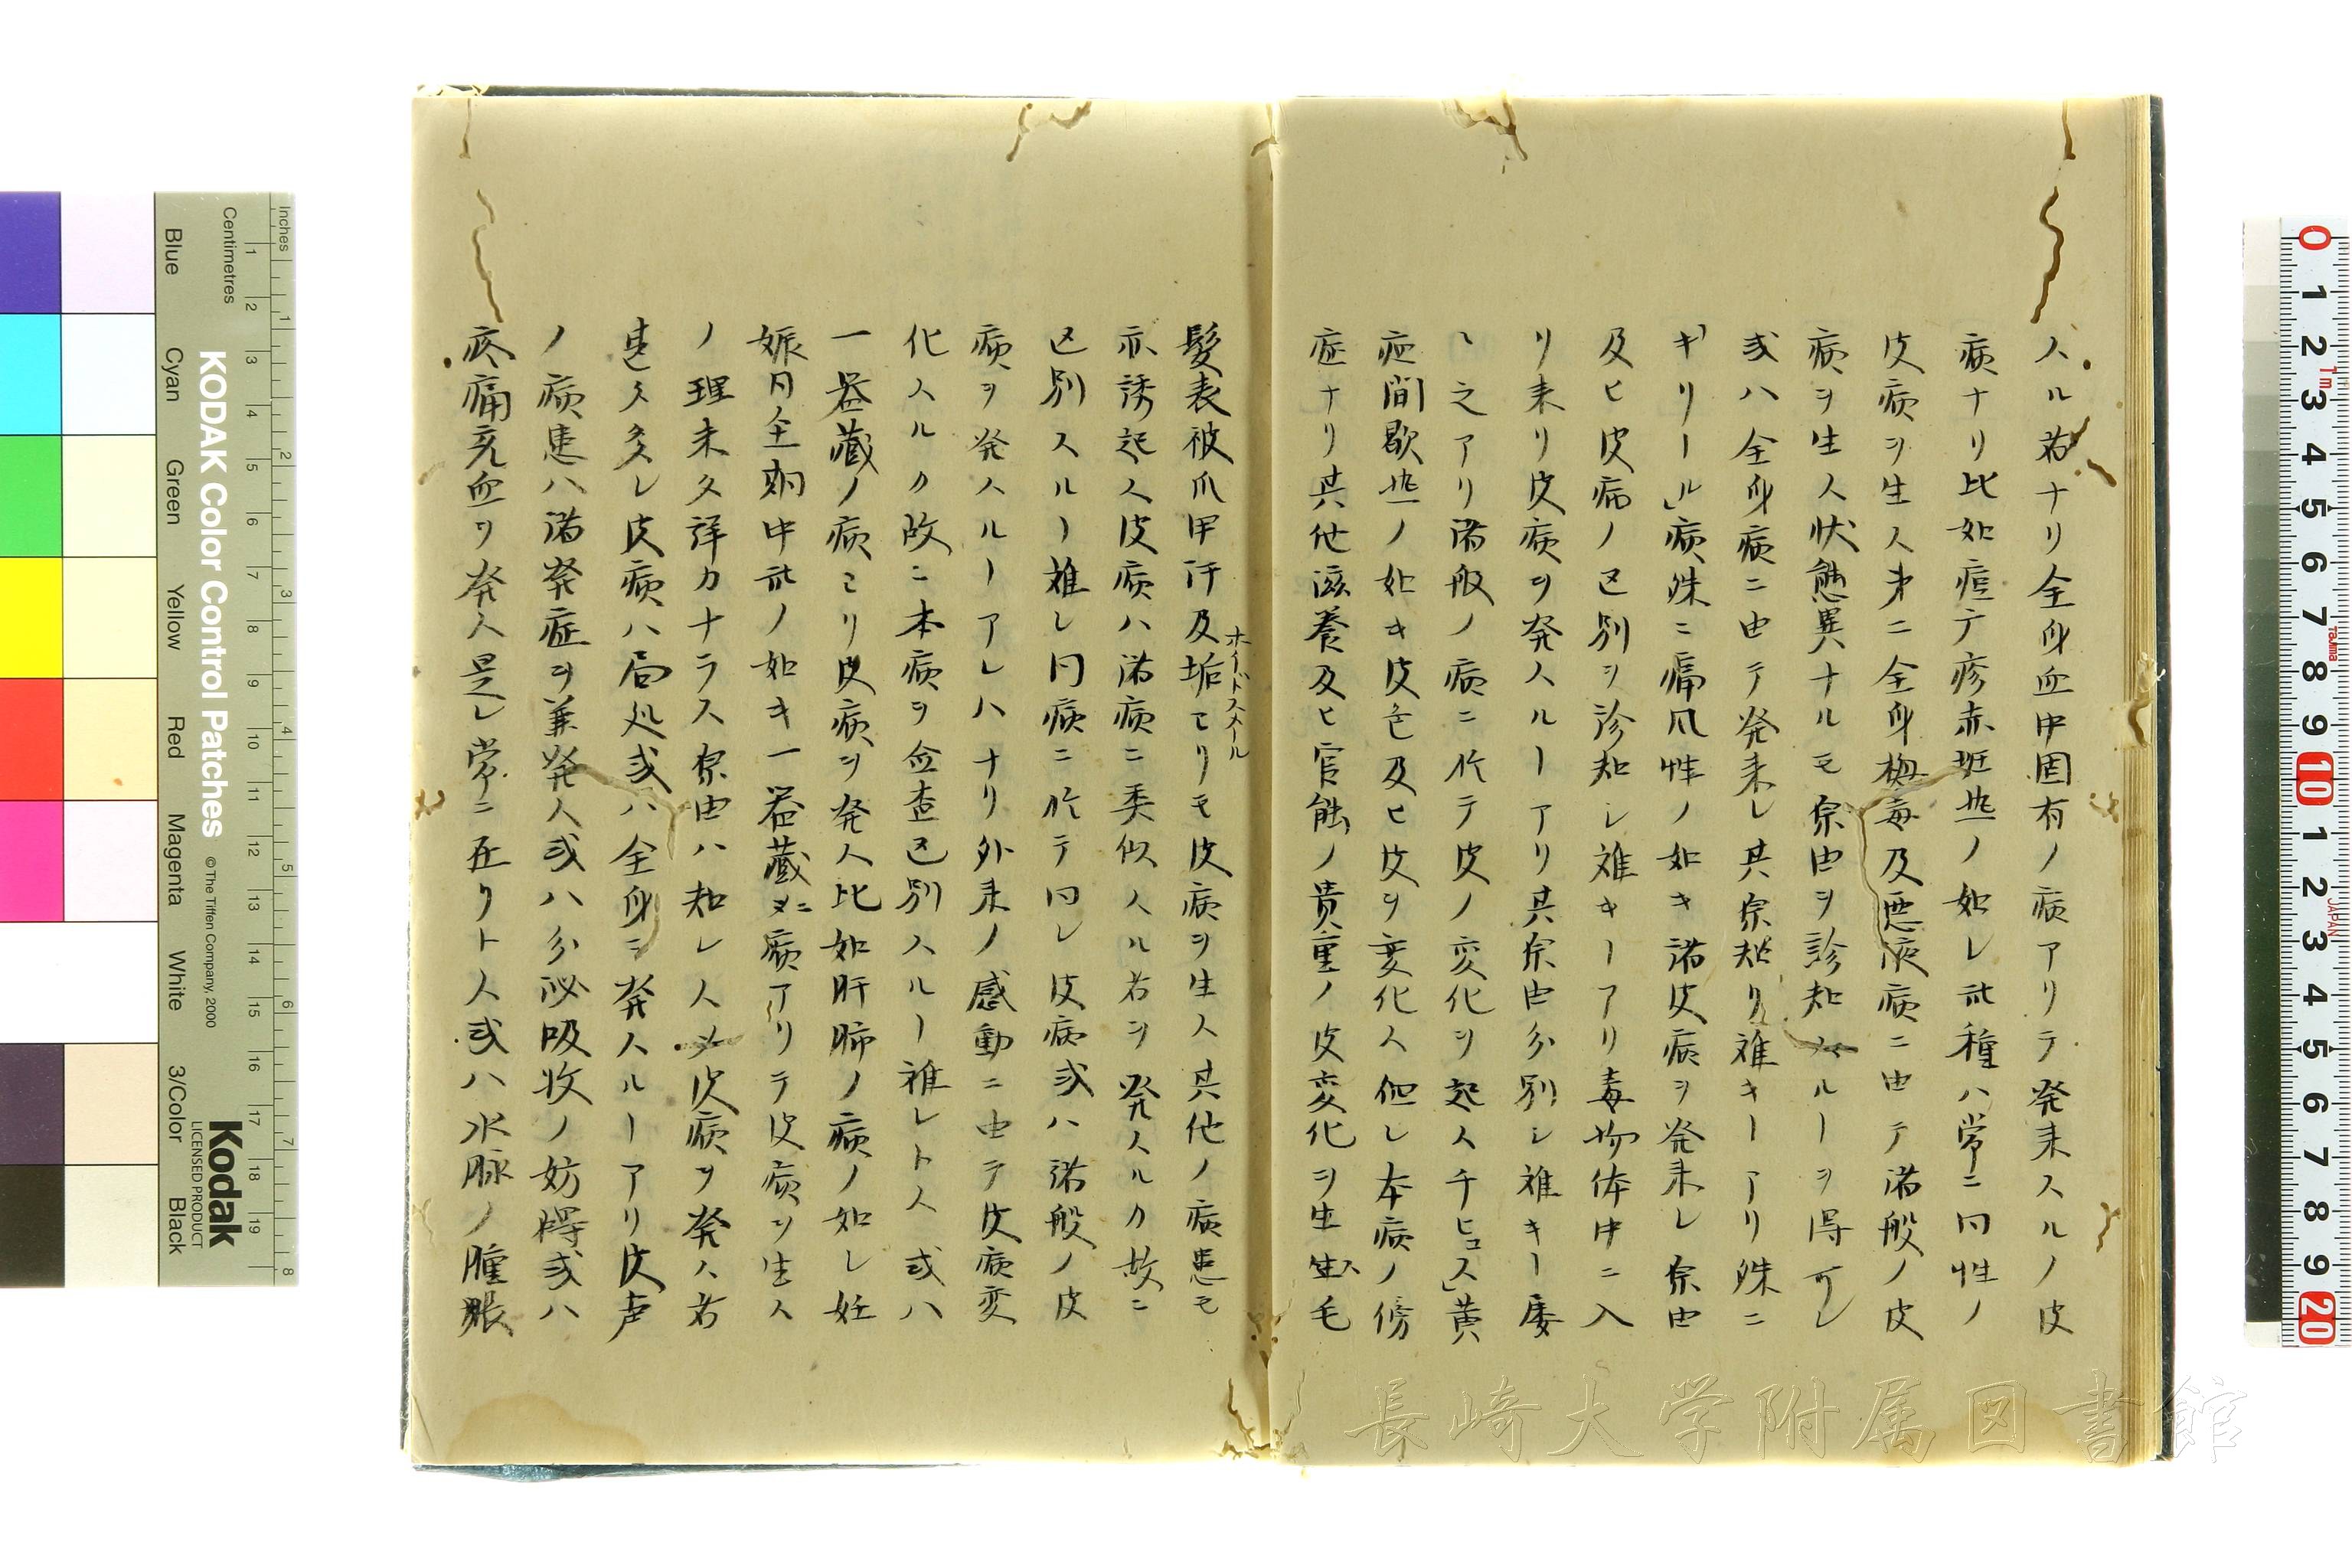 スル者ナリ全身血中固有ノ病アリテ発来スルノ皮
病ナリ比如痘疹赤斑熱ノ如レ此種ハ常ニ同性ノ
皮病ヲ生ス第ニ全身梅毒及悪液病ニ由テ諸般ノ皮
病ヲ生ス状態異ナルモ原由ヲ診知スルヿヲ得可レ
或ハ全身病ニ由テ発来レ其原知リ難キヿアリ殊ニ
ギリール」病殊ニ痛風性ノ如キ諸皮病ヲ発来レ原由
及ヒ皮病ノ区別ヲ診知レ難キヿアリ毒物体中ニ入
リ来リ皮病ヲ発スルヿアリ其原由分別レ難キヿ屡
〻之アリ諸般ノ病ニ於テ皮ノ変化ヲ起ス千ヒュス」黄
疸間歇熱ノ如キ皮色及ヒ皮ヲ変化ス但レ本病ノ傍
症ナリ其他滋養及ヒ官能ノ貴重ノ皮変化ヲ生ス毛
髪表被爪甲汗及垢ヨリモ皮病ヲ生ス其他ノ病患モ
ホイドスメール
亦誘起ス皮病ハ諸病ニ類似スル者ヲ発スルカ故ニ
区別スルヿ難レ同病ニ於テ同レ皮病或ハ諸般ノ皮
病ヲ発スルヿアレハナリ外来ノ感動ニ由テ皮病変
化スルカ故ニ本病ヲ検査区別スルヿ難レトス或ハ
一器蔵ノ病ヨリ皮病ヲ発ス比如肝肺ノ病ノ如レ妊
娠月全期中此ノ如キ一器蔵ニ病アリテ皮病ヲ生ス
ノ理未タ詳カナラス原由ハ知レス又皮病ヲ発ス者
甚タ多レ皮病ハ局処或ハ全身ニ発スルヿアリ皮声
ノ病患ハ諸発症ヲ兼発ス或ハ分泌吸收ノ妨碍或ハ
疼痛充血ヲ発ス是レ常ニ在リトス或ハ水脈ノ腫脹
KODAK Color Control Patches
© The Tiffen Company, 2000
Kodak
LICENSED PRODUCT
Inches
Centimetres
Blue
Cyan
Green
Yellow
Red
Magenta
White
3/Color
Black
長崎大学附属図書館